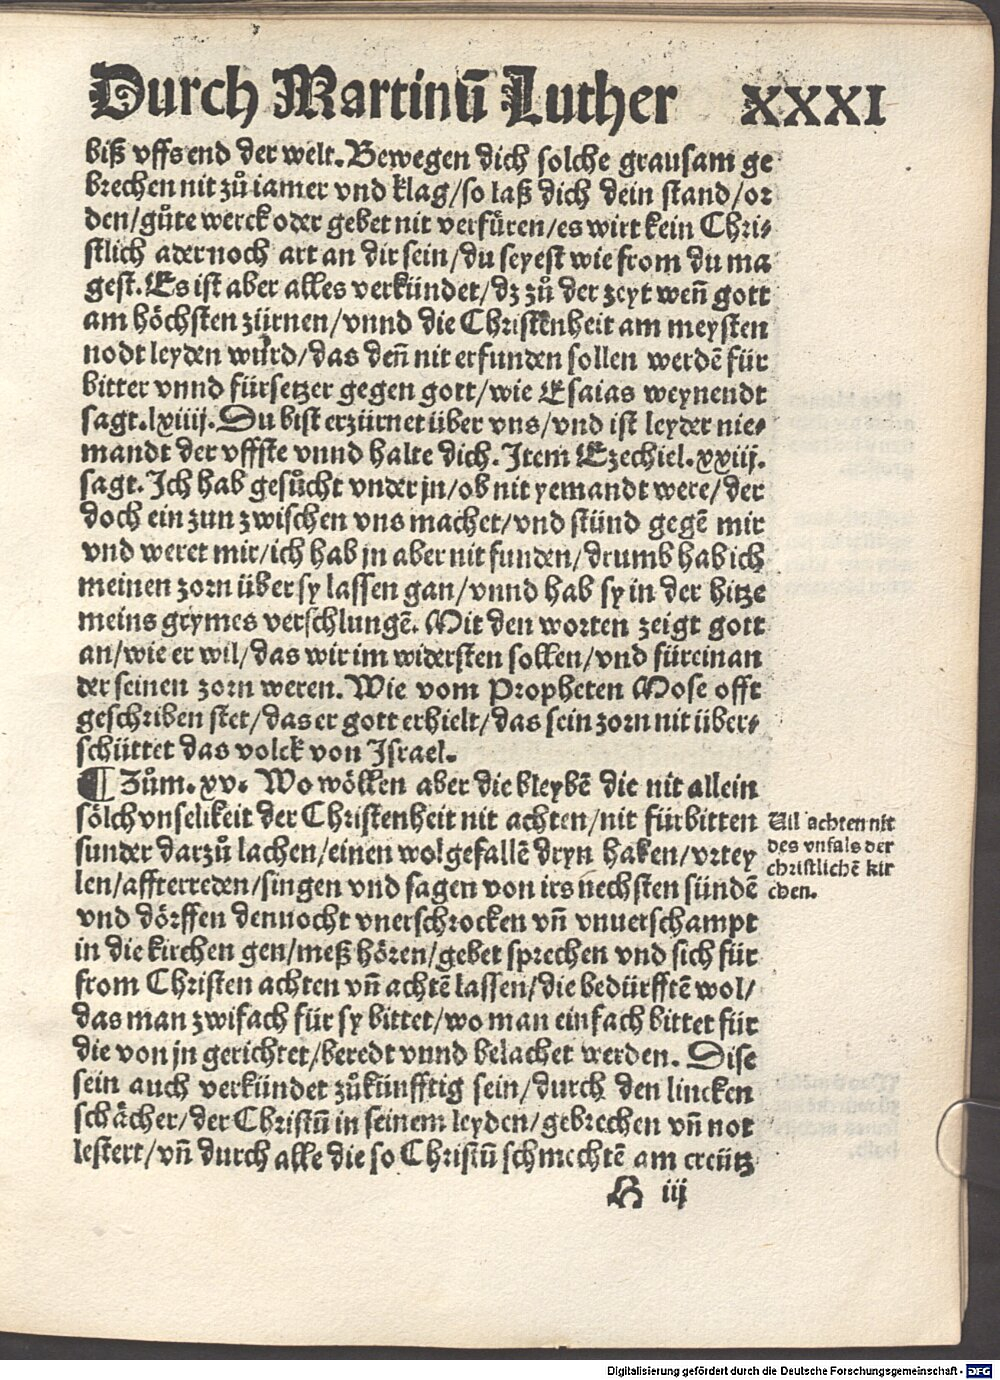 Durch Martinū Luther XXXI
biß vffs end der welt. Bewegen dich solche grausam ge
brechen nit zů iamer vnd klag/so laß dich dein stand/or
den/gůte werck oder gebet nit verfüren/es wirt kein Chri⸗
stlich ader noch art an dir sein/du seyest wie from du ma
gest. Es ist aber alles verkündet/dz zů der zeyt weñ gott
am höchsten zürnen/vnnd die Christenheit am meysten
nodt leyden würd/das deñ nit erfunden sollen werdē für
bitter vnnd fürsetzer gegen gott/wie Esaias weynendt
sagt.lxiiij. Du bist erzürnet über vns/vnd ist leyder nie⸗
mandt der vffste vnnd halte dich. Item Ezechiel.xxiij.
sagt. Ich hab gesůcht vnder jn/ob nit yemandt were/der
doch ein zun zwischen vns machet/vnd stünd gegē mir
vnd weret mir/ich hab jn aber nit funden/drumb hab ich
meinen zorn über sy lassen gan/vnnd hab sy in der hitze
meins grymes verschlungē. Mit den worten zeigt gott
an/wie er wil/das wir im widersten sollen/vnd für einan
der seinen zorn weren. Wie vom Propheten Mose offt
geschriben stet/das er gott erhielt/das sein zorn nit über⸗
schüttet das volck von Israel.
¶ Zům.xv. Wo wöllen aber die bleybē die nit allein
sölch vnselikeit der Christenheit nit achten/nit fürbitten
sunder darzů lachen/einen wolgefallē dryn haben/vrtey
len/affterreden/singen vnd sagen von irs nechsten sündē
vnd dörffen dennocht vnerschrocken vñ vnuerschampt
in die kirchen gen/meß hören/gebet sprechen vnd sich für
from Christen achten vñ achtē lassen/die bedürfftē wol/
das man zwifach für sy bittet/wo man einfach bittet für
die von jn gerichtet/beredt vnnd belachet werden. Dise
sein auch verkündet zůkünfftig sein/durch den lincken
schächer/der Christū in seinem leyden/gebrechen vñ not
lestert/vñ durch alle die so Christū schmechtē am creütz
Vil achten nit
des vnfals der
christlichē kir
chen.
H iij
Digitalisierung gefördert durch die Deutsche Forschungsgemeinschaft - DFG